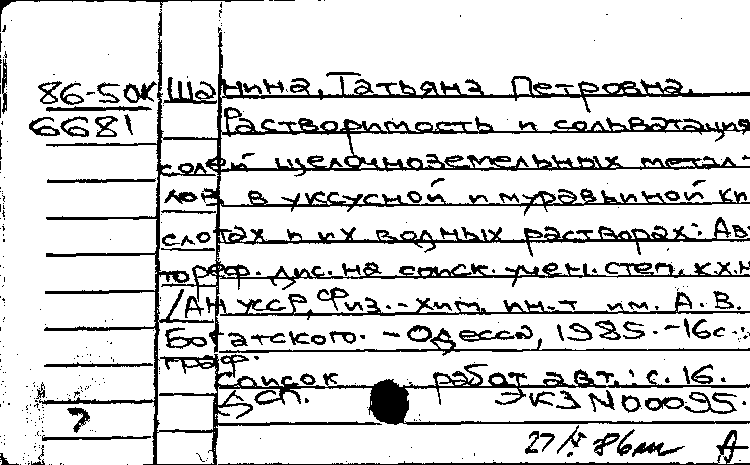 86-50к Шанина, Татьяна Петровна.
6681 Растворимость и сольватация
солей щелочноземельных метал-
лов в уксусной и муравьиной ки
слотах и их водных растворах: Ав
тореф. дис. на соиск. учен. степ. к.х.н
/АН УССР, Физ.-хим. ин-т им. А.В.
Богатского. - Одесса, 1985. - 16с.:
граф.
Список работ авт.: с.16.
Дсп. ЭКЗ N00095.
27/V 86